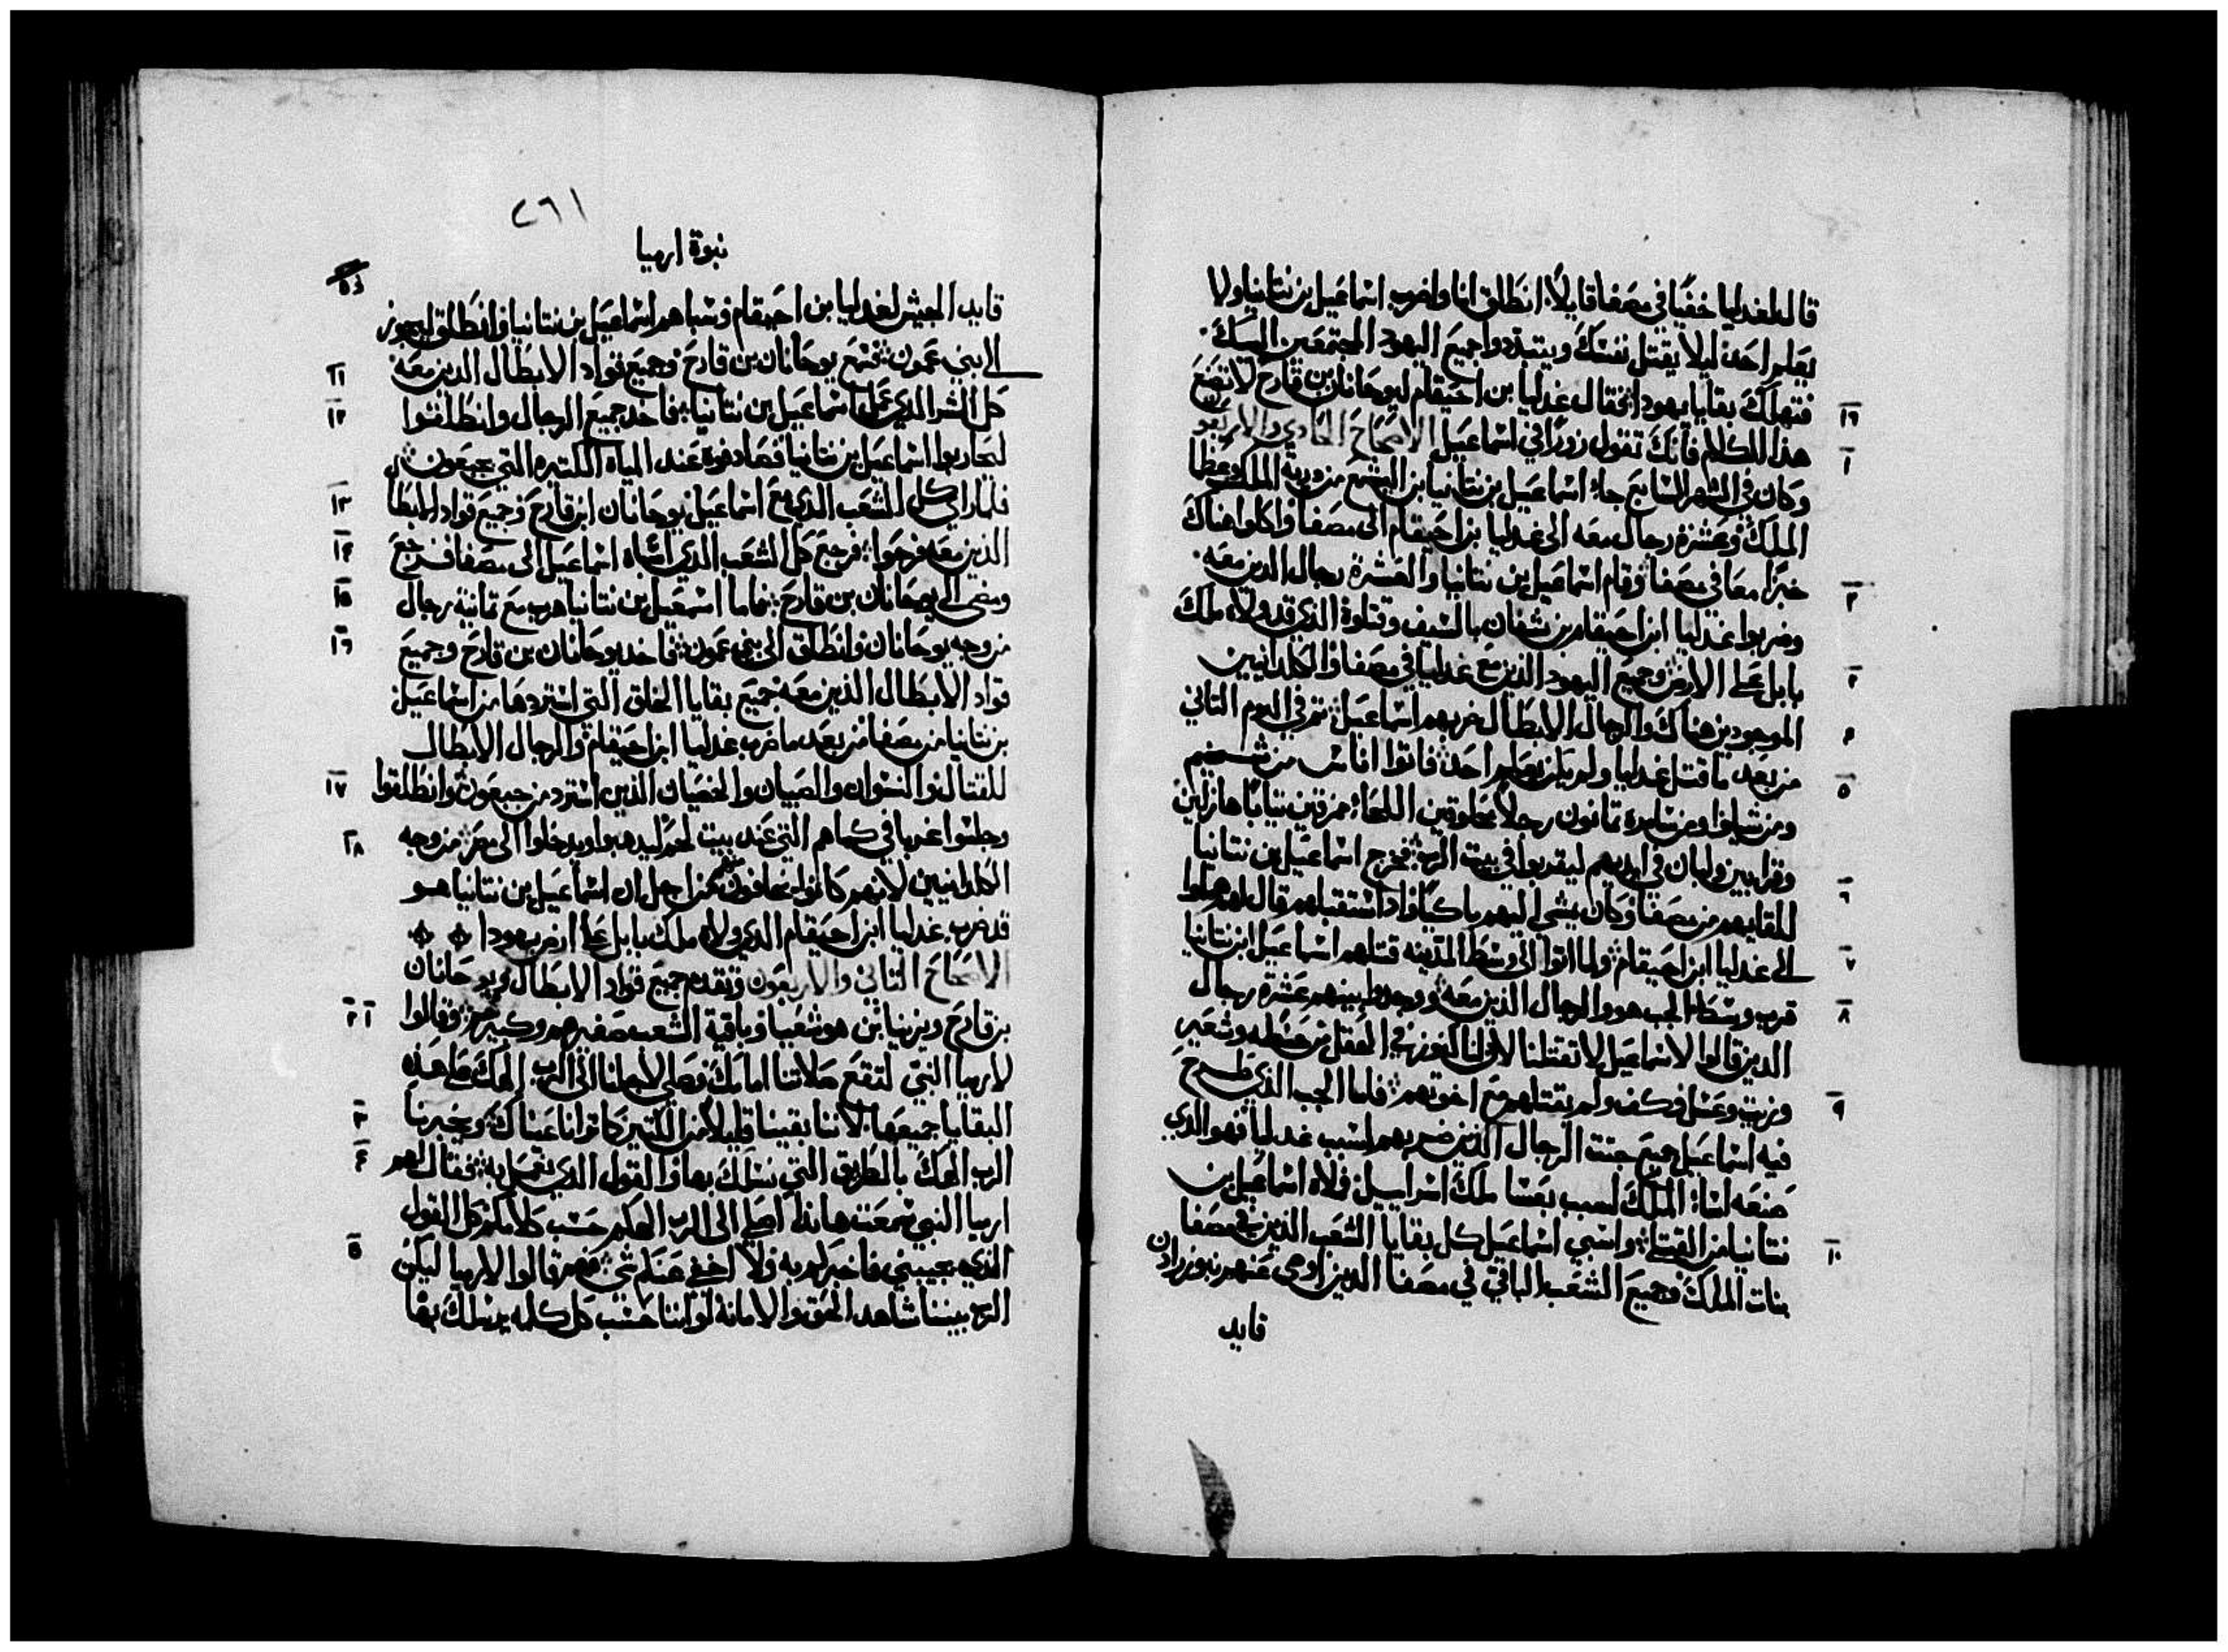 قال لغدليا خفيًا في مصفا قايلاً انطلق انا واضرب اسماعيل بن نتانيا ولا
يعلم احد ليلا يقتل نفسك ويتبددوا جميع اليهود المجتمعين اليك
فتهلك بقايا يهودا فقال غدليا بن احيقام ليوحانان بن قارح لا تصنع
١٦
هذا الكلام فانك تقول زورًا في اسماعيل الاصحاح الحادي والاربعون
١
وكان في الشهر السابع جاء اسماعيل بن نتانيا بن اليشمع من ورية الملك وعظما
الملك وعشرة رجال معه الى غدليا بن احيقام الى مصفا واكلوا هناك
خبزًا معا في مصفا وقام اسماعيل بن نتانيا والعشرة رجال الذين معه
٢
وضربوا غدليا ابن احيقام بن شفان بالسيف وقتلوه الذي قد ولاه ملك
بابل على الارض وجميع اليهود الذين مع غدليا في مصفا والكلدانيين
٣
الموجودين هناك والرجال الابطال ضربهم اسماعيل ثم في اليوم التاني
٤
من بعد ما قتل غدليا ولم يكن يعلم احد فاتوا اناس من شخيم
٥
ومن شيلوا ومن سامرة تمانون رجلاً محلوقين اللحاء ممزقين تيابًا هازلين
وقرابين ولبان في ايديهم ليقدموا في بيت الرب فخرج اسماعيل بن نتانيا
٦
للقايهم من مصفا وكان يمشي اليهم باكيًا فاد استقبلهم قال لهم هلموا
الى غدليا ابن احيقام ولما اتوا الى وسط المدينه قتلهم اسماعيل ابن نتانيا
٧
قرب وسط الجب هو والرجال الذين معه ووجدوا بينهم عشرة رجال
٨
الدين قالوا لاسماعيل لا تقتلنا لان لنا كنوز في الحقل من حنطه وشعير
وزيت وعسل فكف ولم يقتلهم مع اخوتهم فاما الجب الذي طرح
٩
فيه اسماعيل جميع جتت الرجال الذين ضربهم لسبب غدليا فهو الذي
صنعه اساء الملك لسبب بعشا ملك اسراييل فملاه اسماعيل بن
نتانيا من القتلى واسبي اسماعيل كل بقايا الشعب الذين في مصفا
١٠
بنات الملك وجميع الشعب الباقي في مصفا الدين اوصى عنهم نبوزرادن
قايد
٢٦١
نبوة ارميا
قايد الجيش لغدليا بن احيقام وسباهم اسماعيل بن نتانيا وانطلق ليجوز
الى بني عمون فسمع يوحانان بن قارح وجميع قواد الابطال الدين معه
١١
كل الشر الذي عمل اسماعيل بن نتانيا فاخد جميع الرجال وانطلقوا
١٢
ليحاربوا اسماعيل بن نتانيا فصادفوه عند المياه الكتيره التي بجبعون
فلما راى كل الشعب الذي مع اسماعيل يوحانان ابن قارح وجميع قواد الابطا
١٣
الذين معه فرحوا فرجع كل الشعب الذي اسباه اسماعيل الى مصفا فرجع
١٤
ومضى الى يوحانان بن قارح فاما اسمعيل بن نتانيا هرب مع تمانية رجال
١٥
من وجه يوحانان وانطلق الى بني عمون فاخد يوحانان بن قارح وجميع
١٦
قواد الابطال الذين معه جميع بقايا الخلق التي استردها من اسماعيل
بن نتانيا من مصفا من بعد ما ضرب غدليا ابن احيقام والرجال الابطال
للقتال والنسوان والصبيان والخصيان الذين استرد من جبعون وانطلقوا
١٧
وجلسوا غربا في كماهم التي عند بيت لحم ليدهبوا ويدخلوا الى مصر من وجه
١٨
الكلدانيين لانهم كانوا يخافون منهم من اجل ان اسماعيل بن نتانيا هو
قد ضرب غدليا ابن احيقام الدي ولاه ملك بابل على ارض يهودا
الاصحاح التاني والاربعون وتقدم جميع قواد الابطال ويوحانان
بن قارح ويزنيا بن هوشعيا وباقية الشعب صغيرهم وكبيرهم وقالوا
٢ ١
لارميا النبي لتقع صلاتنا امامك وصلي لاجلنا الى الرب الهك على هذه
البقايا جميعها لاننا بقينا قليلاً من الكتير كما ترانا عيناك ويخبرنا
٣
الرب الهك بالطريق التي نسلك بها والقول الدي نعمل به فقال لهم
٤
ارميا النبي سمعت هانذا اصلي الى الرب الهكم حسب كلامكم كل القول
الذي يجيبني فاخبركم به ولا اخفي عنكم شي فهم قالوا لارميا ليكن
٥
الرب بيننا شاهد الحق والامانة لو اننا حسب كل كلمه يرسلك بها